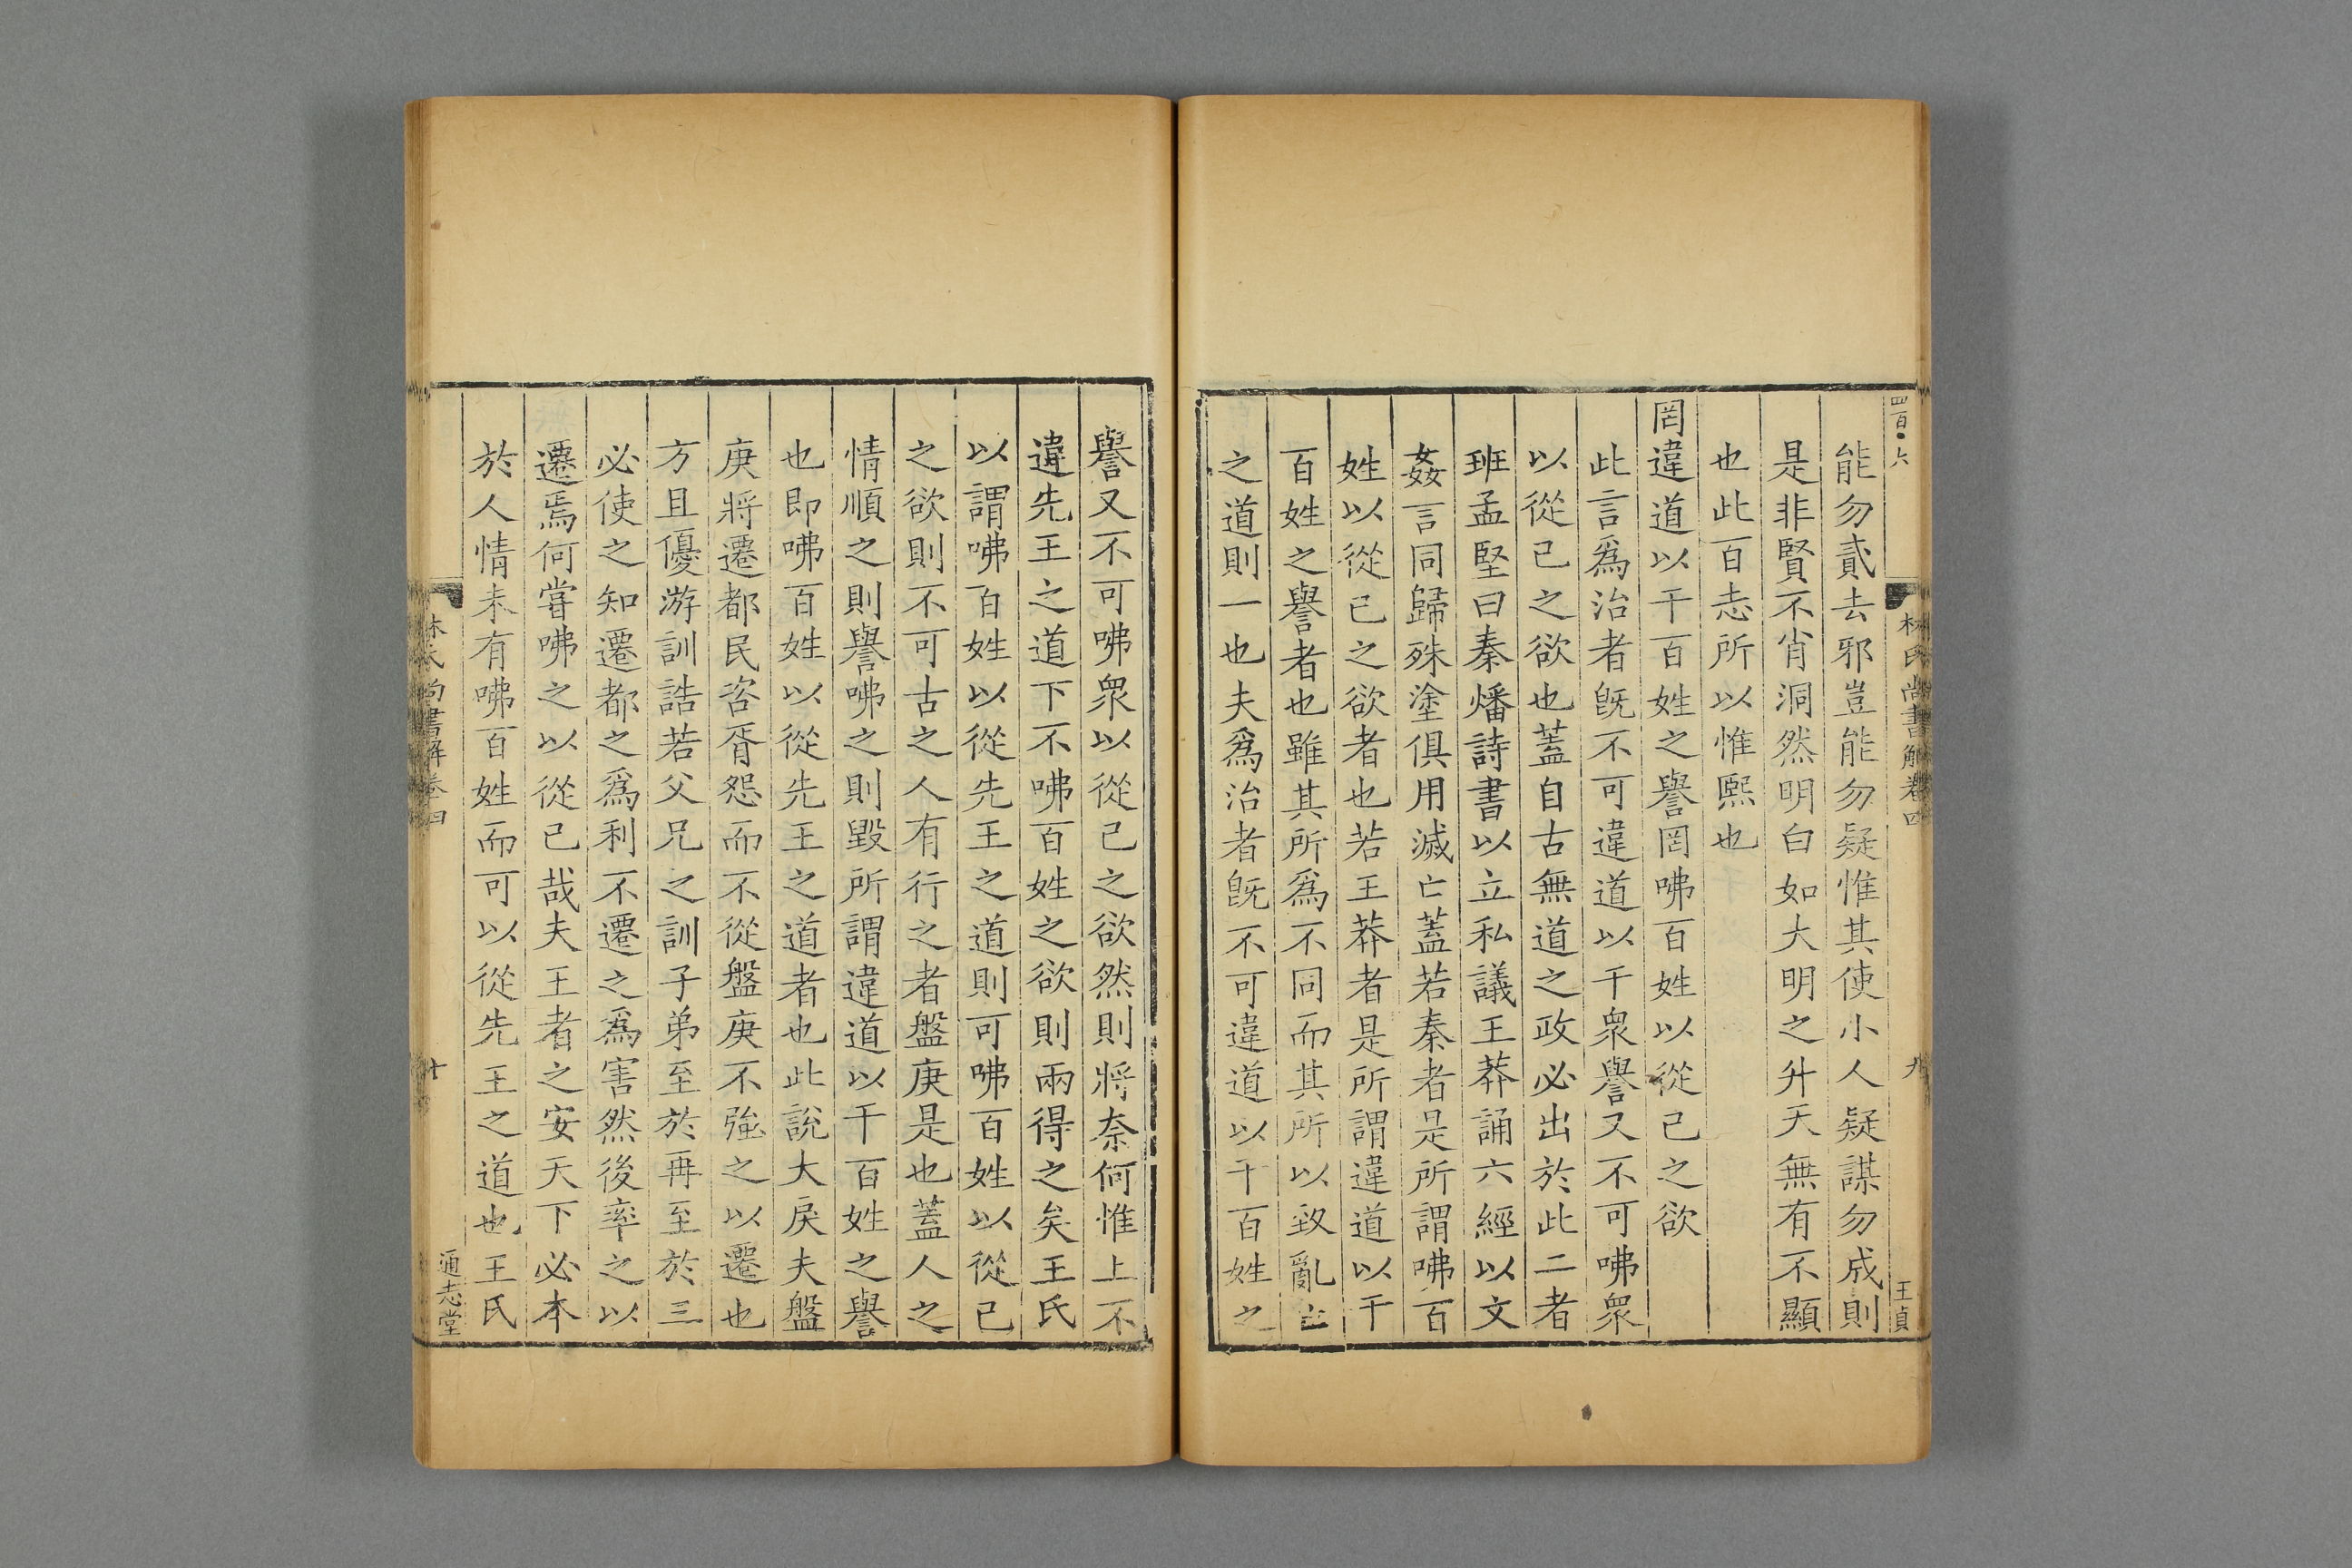 四百六
林氏尚書解卷四
九
王貞
能勿貳去邪豈能勿疑惟其使小人疑謀勿成則
是非賢不肖洞然明白如大明之升天無有不顯
也此百志所以惟熙也
罔違道以干百姓之譽罔咈百姓以從己之欲
此言爲治者旣不可違道以干衆譽又不可咈衆
以從己之欲也蓋自古無道之政必出於此二者
班孟堅曰秦燔詩書以立私議王莽誦六經以文
姦言同歸殊塗俱用滅亡蓋若秦者是所謂咈百
姓以從己之欲者也若王莽者是所謂違道以干
百姓之譽者也雖其所爲不同而其所以致亂亡
之道則一也夫爲治者旣不可違道以干百姓之
譽又不可咈衆以從己之欲然則將奈何惟上不
違先王之道下不咈百姓之欲則兩得之矣王氏
以謂咈百姓以從先王之道則可咈百姓以從己
之欲則不可古之人有行之者盤庚是也蓋人之
情順之則譽咈之則毀所謂違道以干百姓之譽
也即咈百姓以從先王之道者也此說大戾夫盤
庚將遷都民咨胥怨而不從盤庚不強之以遷也
方且優游訓誥若父兄之訓子弟至於再至於三
必使之知遷都之爲利不遷之爲害然後率之以
遷焉何嘗咈之以從己哉夫王者之安天下必本
於人情未有咈百姓而可以從先王之道也王氏
林氏尚書解卷四
十
通志堂